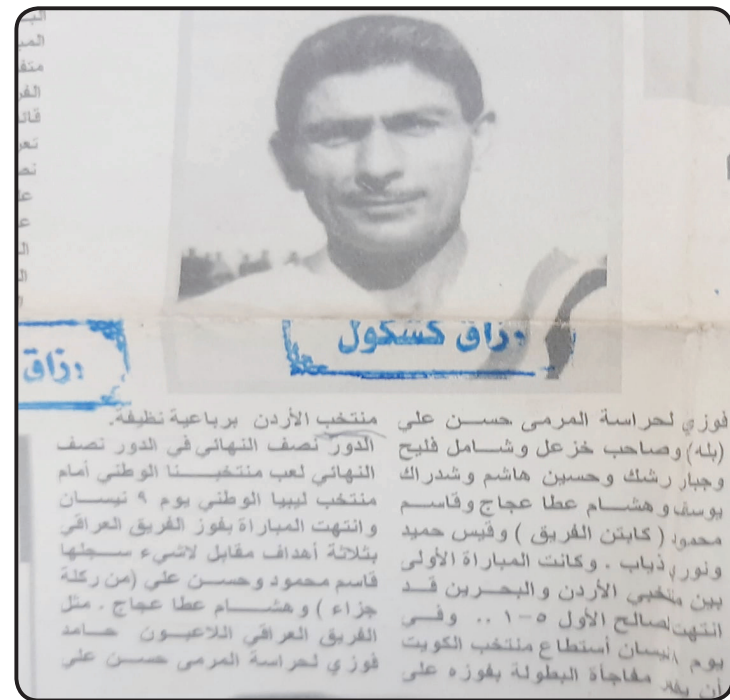 رزاق كسكول
زاق
فوزي لحراسة المرمى حسن علي
(بله) وصاحب خزعل وشامل فليح
وجبار رشك وحسين هاشم وشدراك
يوسف وهشام عطا عجاج وقاسم
محمود ( كابتن الفريق ) وقيس حميد
ونوري ذياب . وكانت المباراة الأولى
بين منتخبي الأردن والبحرين قد
انتهت لصالح الأول ٥-١ .. وفي
يوم نيسان أستطاع منتخب الكويت
أن مفاجأة البطولة بفوزه على
منتخب الأردن برباعية نظيفة.
الدور نصف النهائي في الدور نصف
النهائي لعب منتخبنا الوطني أمام
منتخب ليبيا الوطني يوم ٩ نيسان
وانتهت المباراة بفوز الفريق العراقي
بثلاثة أهداف مقابل لاشيء سجلها
قاسم محمود وحسن علي (من ركلة
جزاء ) وهشام عطا عجاج . مثل
الفريق العراقي اللاعبون حامد
فوزي لحراسة المرمى حسن علي